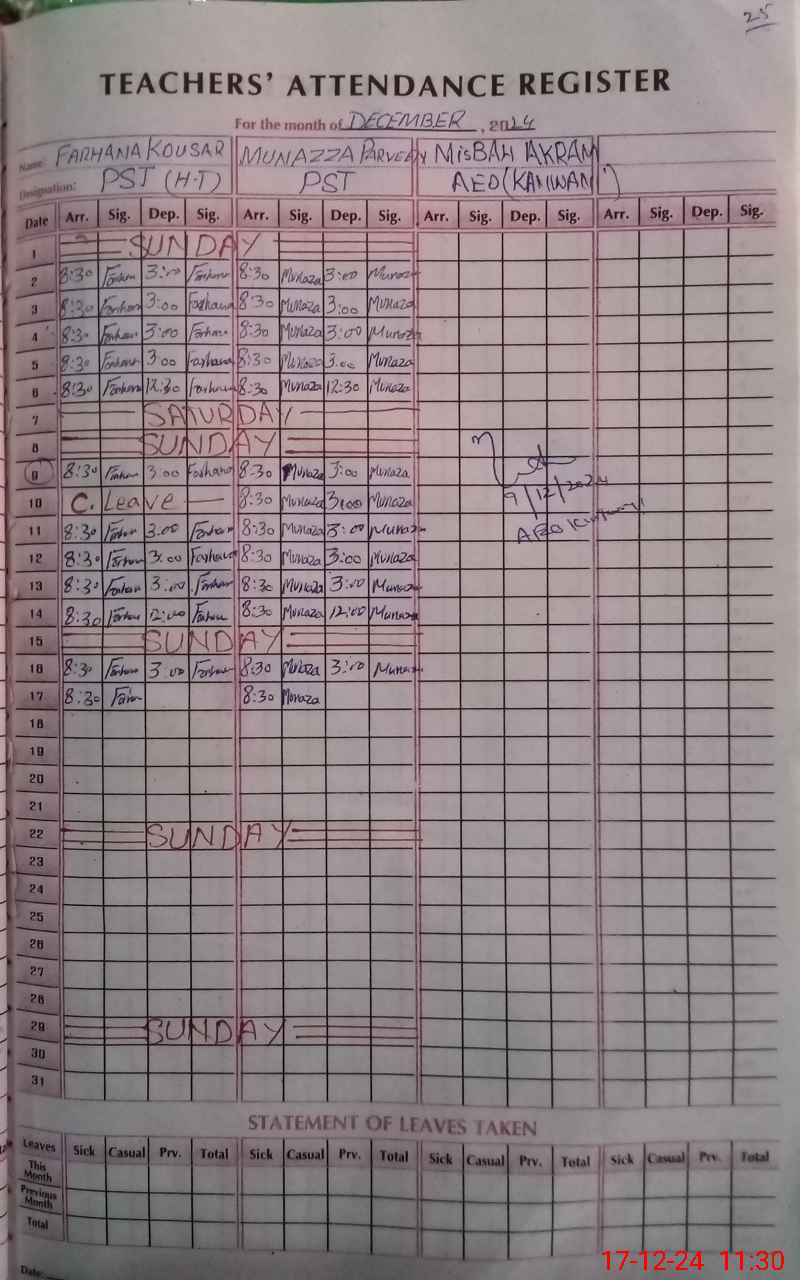 25
TEACHERS' ATTENDANCE REGISTER
For the month of DECEMBER, 2024
Name: FARHANA KOUSAR MUNAZZA PARVEEN MISBAH AKRAM
Designation: PST (H-T) PST AEO (KAHWAN)
Date Arr. Sig. Dep. Sig. Arr. Sig. Dep. Sig. Arr. Sig. Dep. Sig. Arr. Sig. Dep. Sig.
1 SUNDAY
2 8:30 Farhana 3:00 Farhana 8:30 Munaza 3:00 Munaza
3 8:30 Farhana 3:00 Farhana 8:30 Munaza 3:00 Munaza
4 8:30 Farhana 3:00 Farhana 8:30 Munaza 3:00 Munaza
5 8:30 Farhana 3:00 Farhana 8:30 Munaza 3:00 Munaza
6 8:30 Farhana 12:30 Farhana 8:30 Munaza 12:30 Munaza
7 SATURDAY
8 SUNDAY
9 8:30 Farhana 3:00 Farhana 8:30 Munaza 3:00 Munaza
9/12/2024
10 C. Leave 8:30 Munaza 3:00 Munaza
AEO
11 8:30 Farhana 3:00 Farhana 8:30 Munaza 3:00 Munaza
12 8:30 Farhana 3:00 Farhana 8:30 Munaza 3:00 Munaza
13 8:30 Farhana 3:00 Farhana 8:30 Munaza 3:00 Munaza
14 8:30 Farhana 12:00 Farhana 8:30 Munaza 12:00 Munaza
15 SUNDAY
16 8:30 Farhana 3:00 Farhana 8:30 Munaza 3:00 Munaza
17 8:30 Farhana 8:30 Munaza
18
19
20
21
22 SUNDAY
23
24
25
26
27
28
29 SUNDAY
30
31
STATEMENT OF LEAVES TAKEN
Leaves Sick Casual Prv. Total Sick Casual Prv. Total Sick Casual Prv. Total Sick Casual Prv. Total
This Month
Previous Month
Total
Date:
17-12-24 11:30